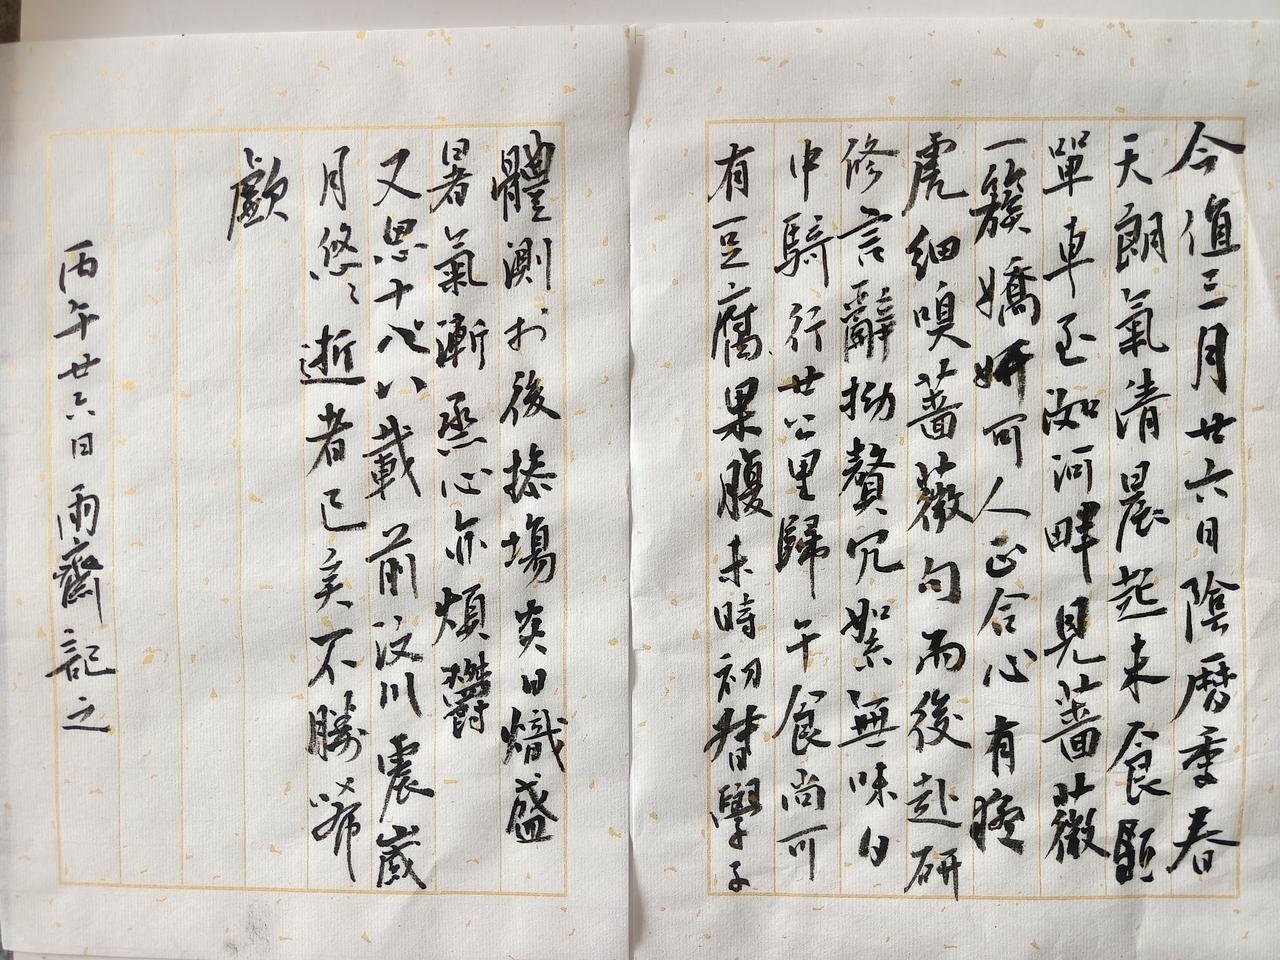 今值三月廿六日陰曆季春
天朗氣清晨起來食駆
單車至洳河畔見薔薇
一簇嬌妍可人正合心有猛
虎細嗅薔薇句而後赴研
修言辭拗贅冗絮無味日
中騎行廿公里歸午食尚可
有豆腐果腹未時初督學子
體測於後操場炎日熾盛
暑氣漸烝心亦煩鬱
又思十八載前汶川震歲
月悠々逝者已矣不勝希
歔
丙午廿六日 雨齋記之